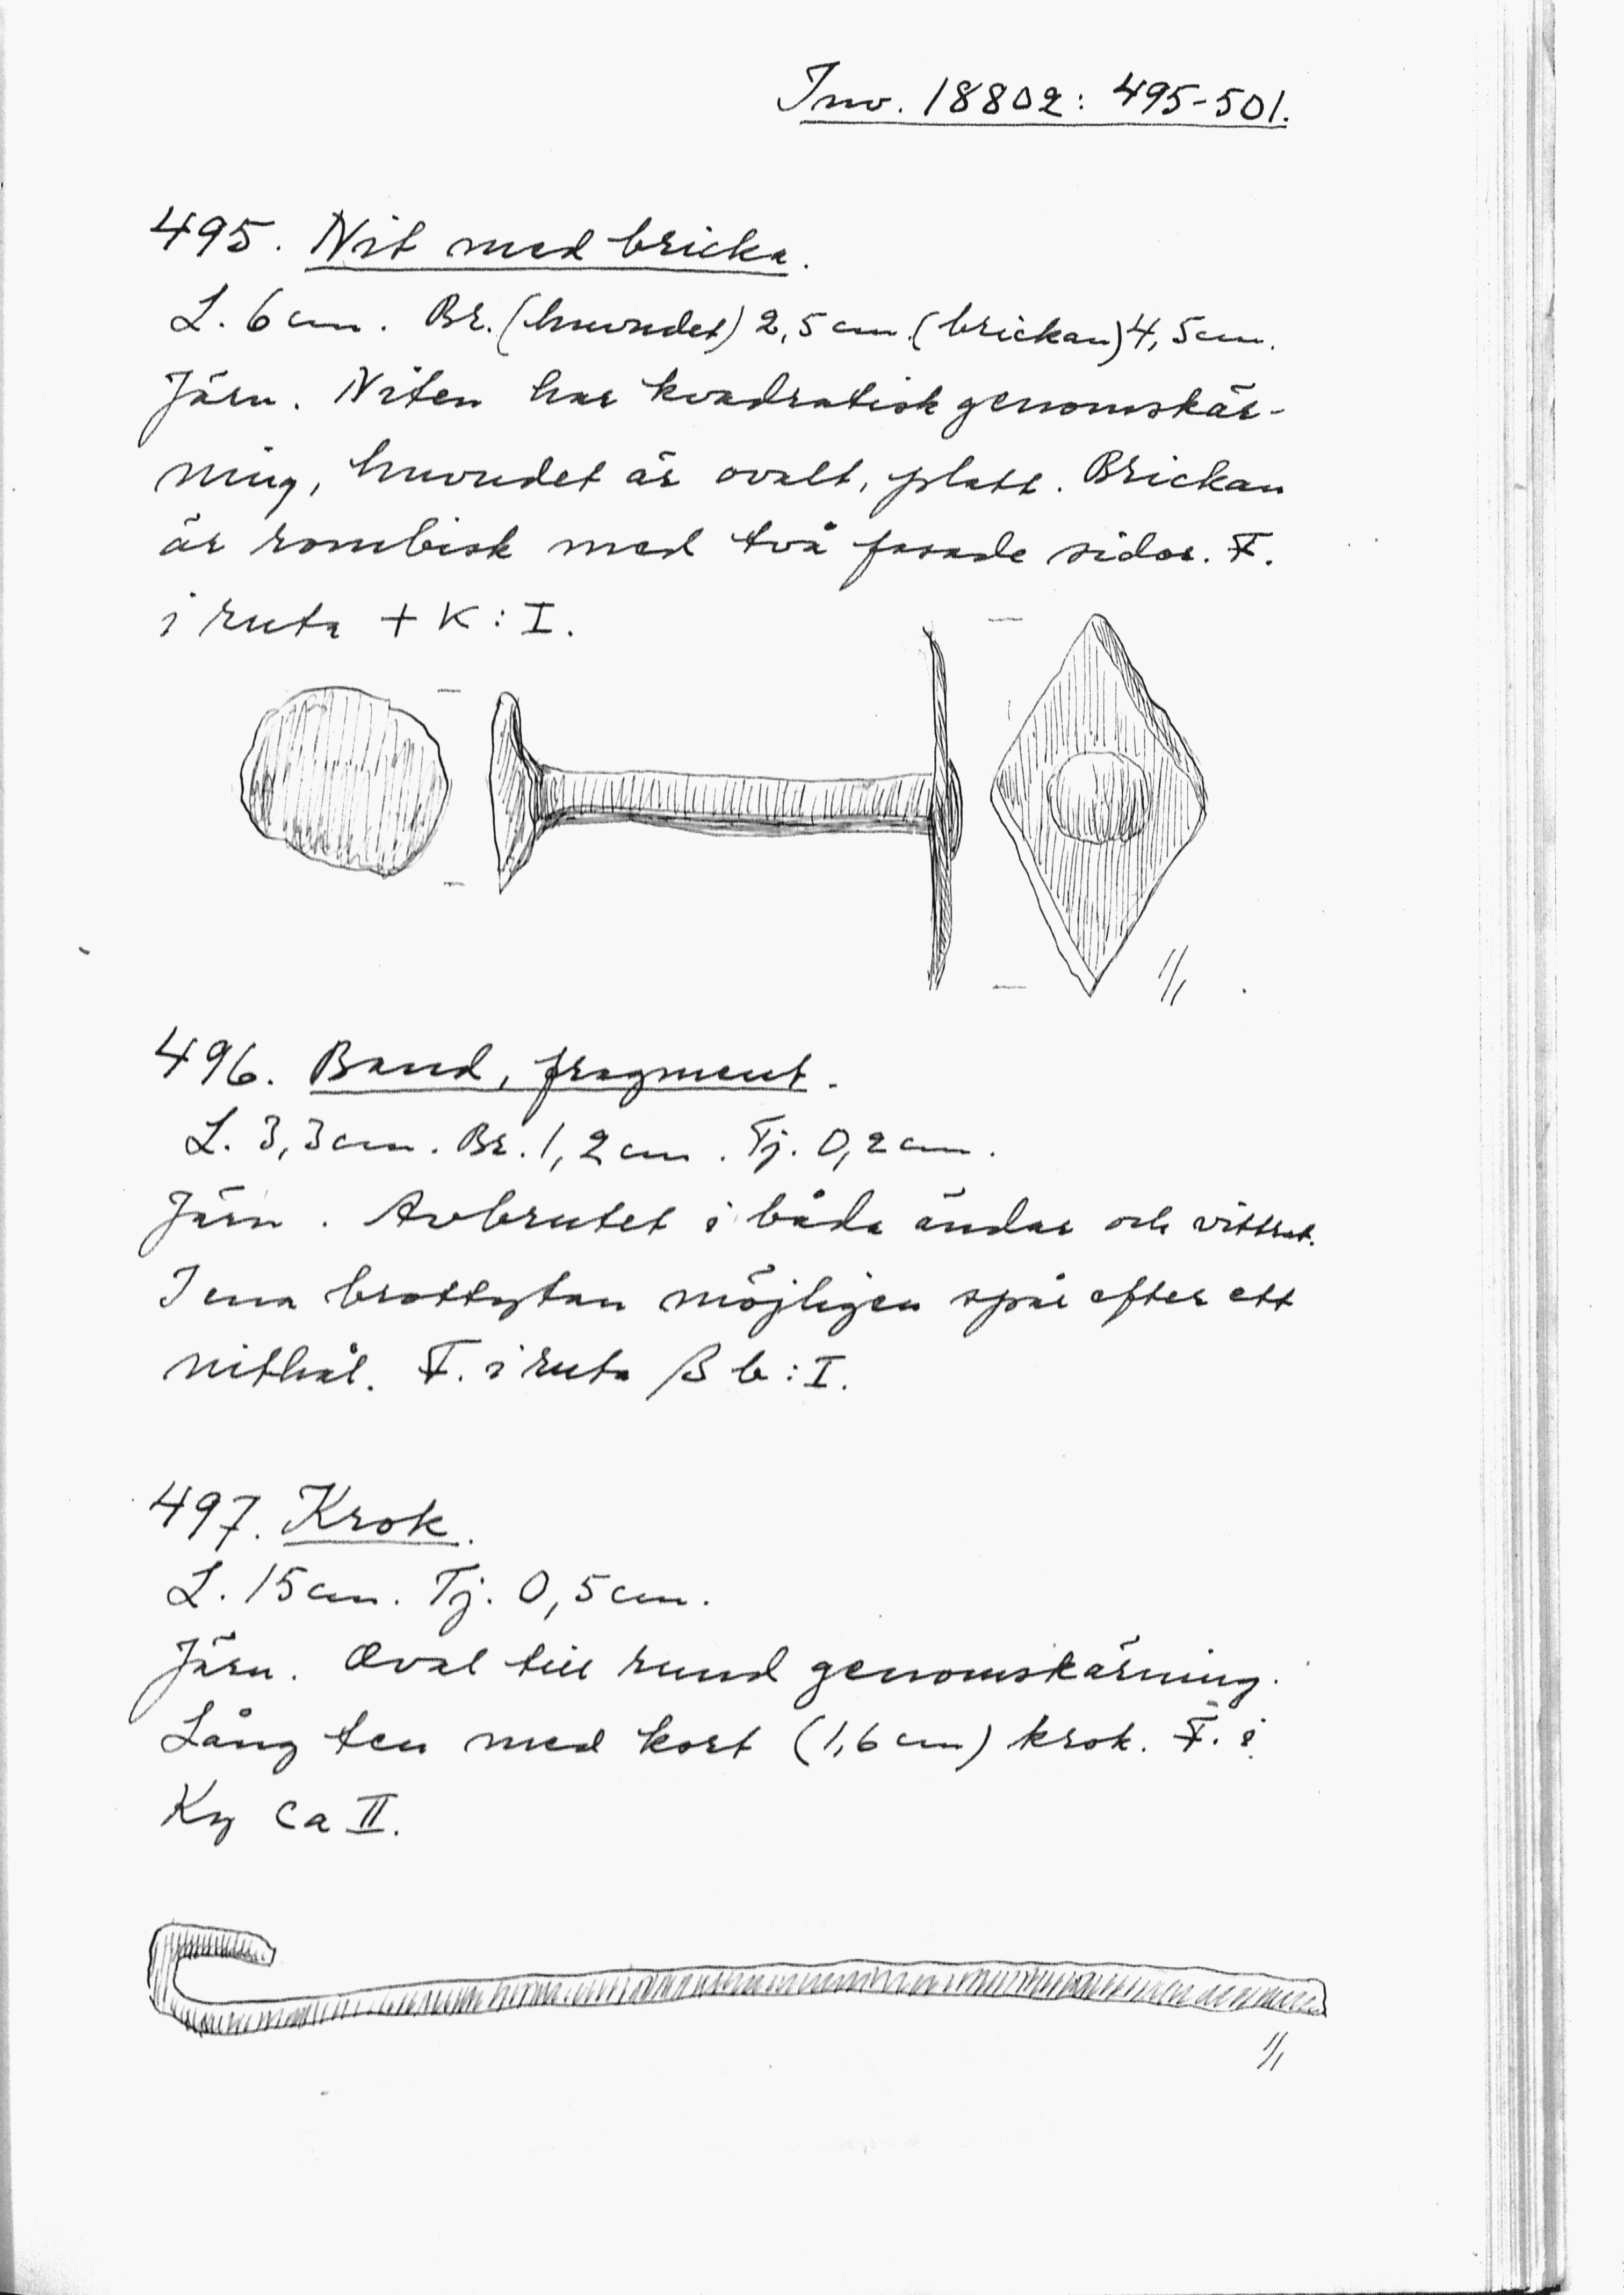 Inv. 18802: 495-501.
495. Nit med bricka.
L. 6 cm. Br. (huvudet) 2,5 cm. (brickan) 4,5 cm.
Järn. Niten har kvadratisk genomskär-
ning, huvudet är ovalt, platt. Brickan
är rombisk med två fasade sidor. F.
i ruta + K : I.
1/1
496. Band, fragment.
L. 3,3 cm. Br. 1,2 cm. Tj. 0,2 cm.
Järn. Avbrutet i båda ändar och vittrat.
I ena brottytan möjligen spår efter ett
nithål. F. i ruta β b : I.
497. Krok.
L. 15 cm. Tj. 0,5 cm.
Järn. Oval till rund genomskärning.
Lång ten med kort (1,6 cm) krok. F. i
Ky Ca II.
1/1